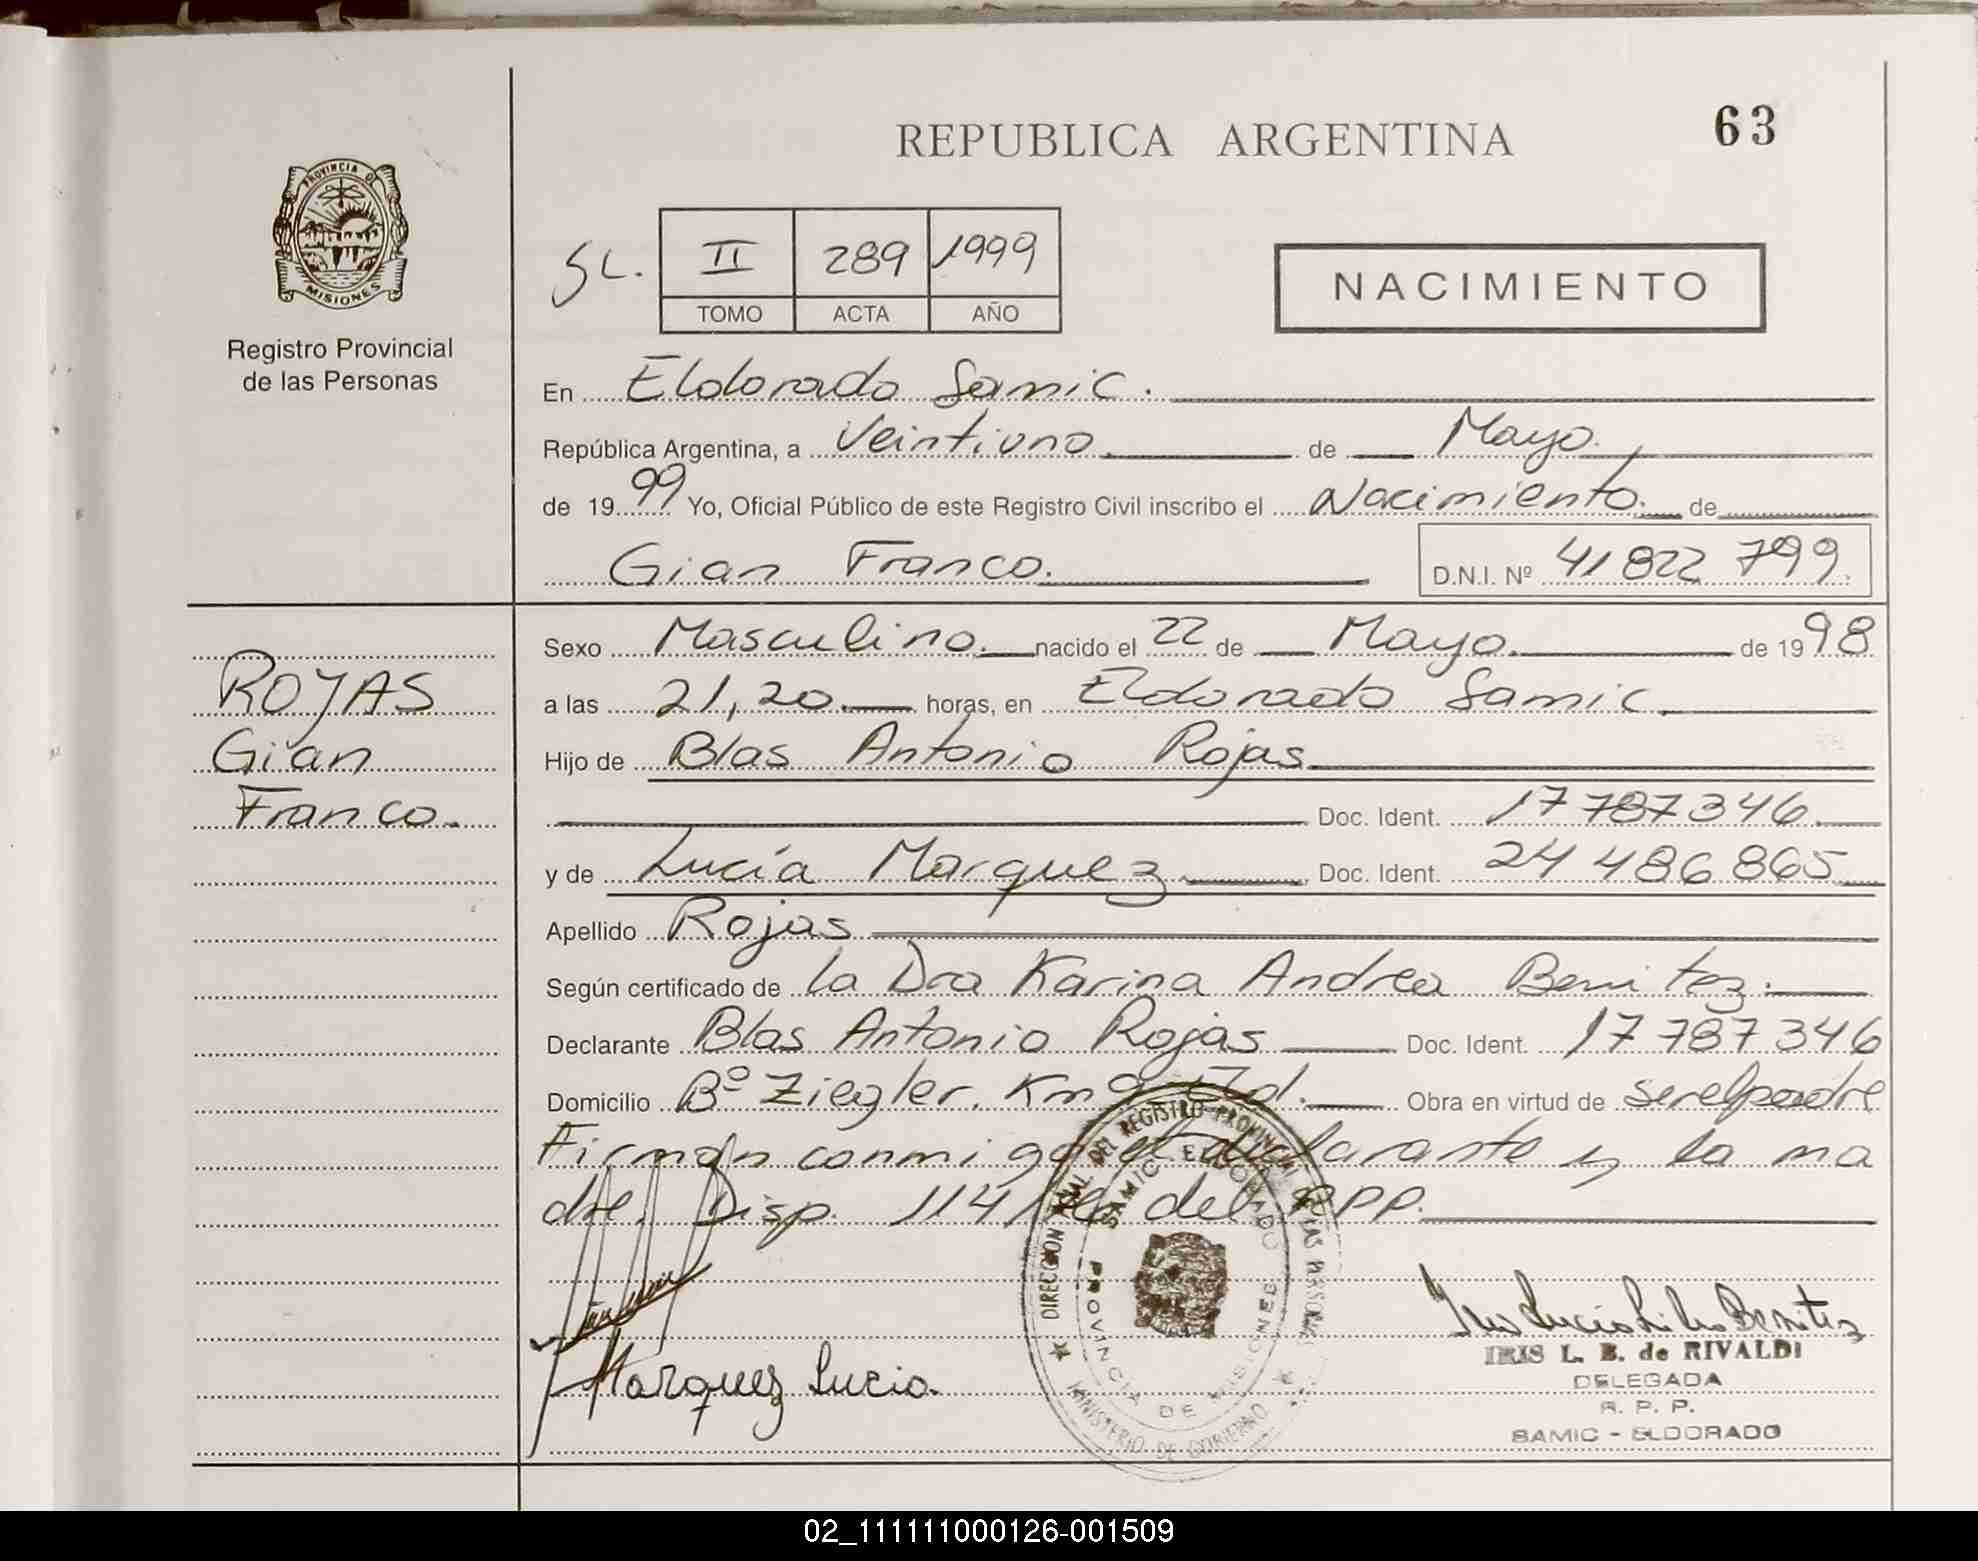 REPUBLICA ARGENTINA
63
PROVINCIA D
MISIONES
Registro Provincial
de las Personas
SL.
II 289 1999
TOMO ACTA AÑO
NACIMIENTO
En Eldorado Samic.
República Argentina, a Veintiuno de Mayo.
de 1999 Yo, Oficial Público de este Registro Civil inscribo el Nacimiento. de
Gian Franco. D.N.I. Nº 41822 799.
Sexo Masculino. nacido el 22 de Mayo. de 1998
ROJAS
a las 21,20 horas, en Eldorado Samic
Gian
Hijo de Blas Antonio Rojas
Franco.
Doc. Ident. 17 787346.
y de Lucía Marquez Doc. Ident. 24 486 865
Apellido Rojas
Según certificado de la Dra Karina Andrea Benitez.
Declarante Blas Antonio Rojas Doc. Ident. 17 787 346
Domicilio Bº Ziegler. Km 9 Eld. Obra en virtud de ser el padre
Firman conmigo el declarante y la ma
dre. Disp. 114/ del RPP.
DIRECCION GRAL. DEL REGISTRO PROVINCIAL DE LAS PERSONAS
SAMIC ELDORADO
PROVINCIA DE MISIONES
MINISTERIO DE GOBIERNO
Marquez Lucia.
Benitez
IRIS L. B. de RIVALDI
DELEGADA
R. P. P.
SAMIC - ELDORADO
02_111111000126-001509